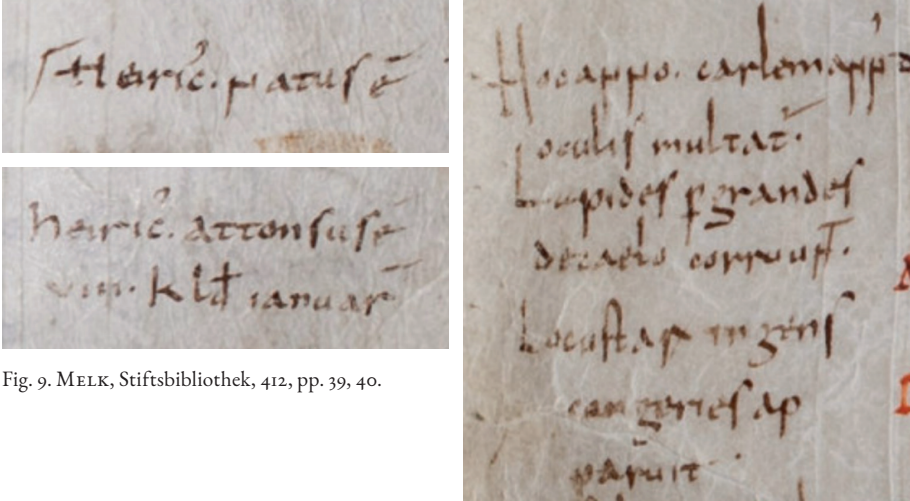 Heiric̅. natus ē
heiric̅. attonsus ē
viii. kld ianuar
Fig. 9. Melk, Stiftsbibliothek, 412, pp. 39, 40.
Hoc anno. carlemann'
oculis multat̅.
Lapides p̱grandes
decaelo corruuɼ̅.
Locustarū ingens
congeries ap
paruit